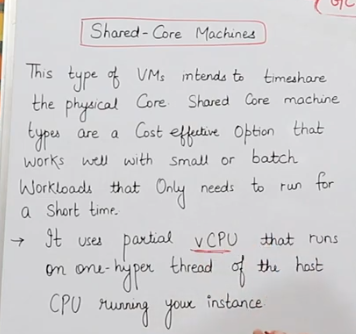 Shared-Core Machines
This type of VMs intends to timeshare
the physical Core. Shared Core machine
types are a Cost effective Option that
works well with small or batch
Workloads that Only needs to run for
a Short time.
→ It uses partial vCPU that runs
on one-hyper thread of the host
CPU running your instance.